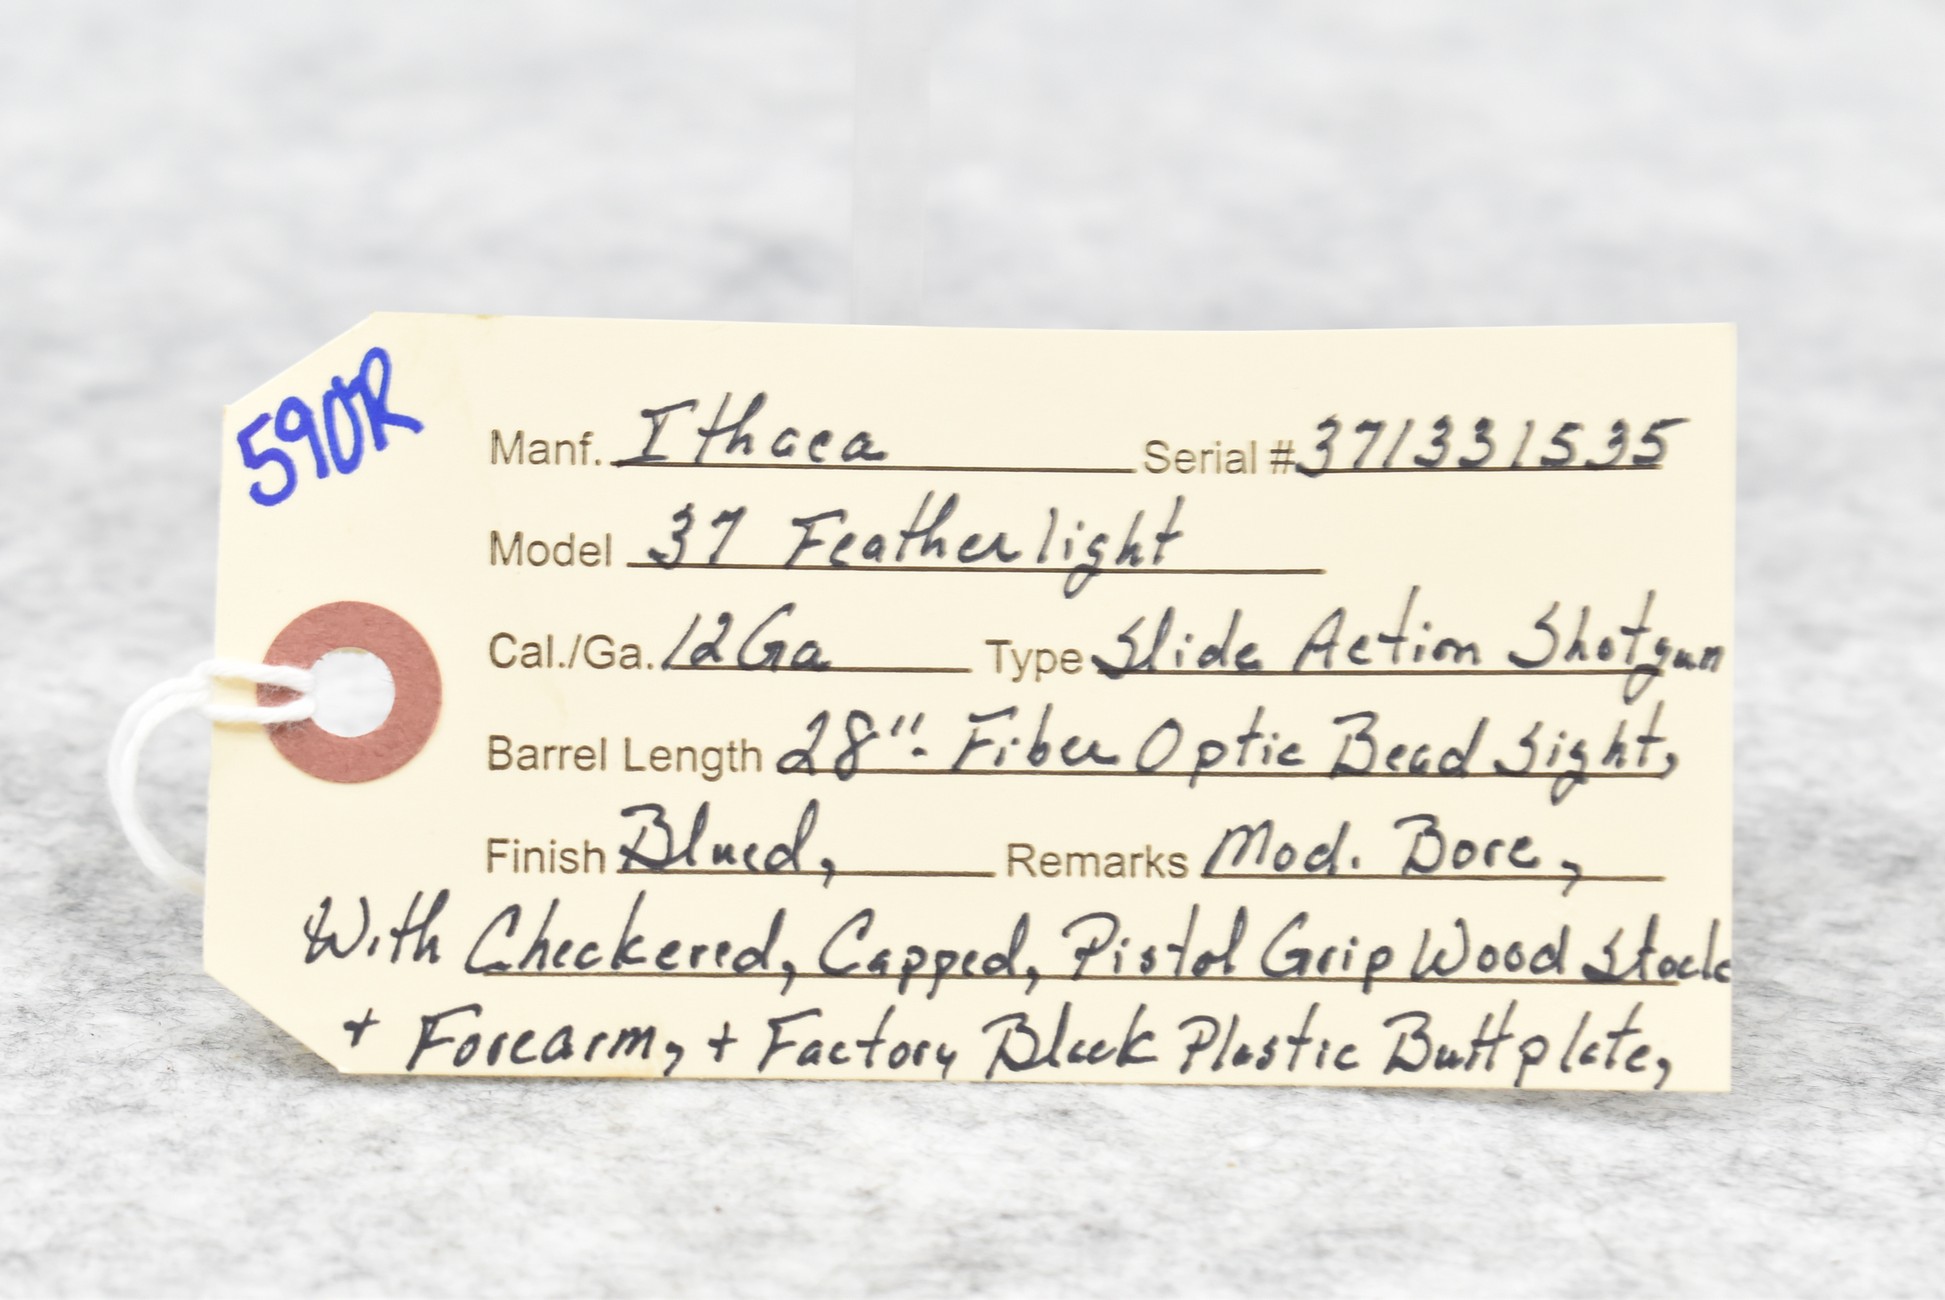 590R
Manf. Ithaca Serial # 371331535
Model 37 Featherlight
Cal./Ga. 12Ga Type Slide Action Shotgun
Barrel Length 28". Fiber Optic Bead Sight,
Finish Blued, Remarks Mod. Bore,
With Checkered, Capped, Pistol Grip Wood Stock
+ Forearm, + Factory Black Plastic Buttplate,